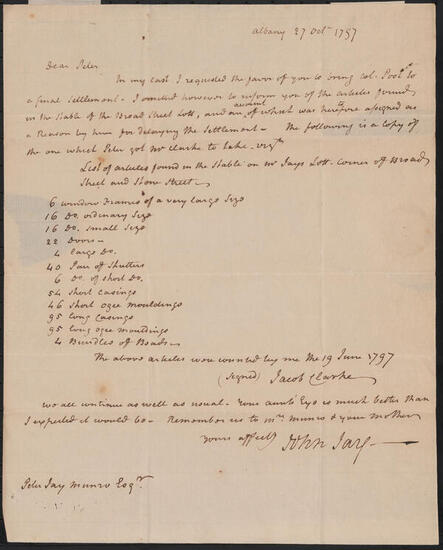 Albany 27 Octr 1797
Dear Peter
In my last I requested the favor of you to bring Col. Post to
a final Settlement - I omitted however to inform you of the articles found
in the Stable of the Broad Street Lott, and an account of which was heretofore assigned as
a Reason by him for delaying the Settlement - The following is a Copy of
the one which Peter got Mr Clarke to take - vizt
List of articles found in the Stable on Mr Jays Lott. corner of Broad
Street and Stone Street -
6 window frames of a very large Size
16 Do. ordinary Size
16 Do. small Size
22 Doors -
4 large Do.
40 Pair of Shutters
6 Do. of short Do.
54 short Casings
46 short ogee mouldings
95 long Casings
95 long ogee mouldings
4 Bundles of Beads -
The above articles were counted by me the 19 June 1797
(signed) Jacob Clarke
we all continue as well as usual - Your aunts Eye is much better than
I expected it would be - Remember us to Mrs Munro & your Mother
Yours affecty John Jay -
Peter Jay Munro Esqr.